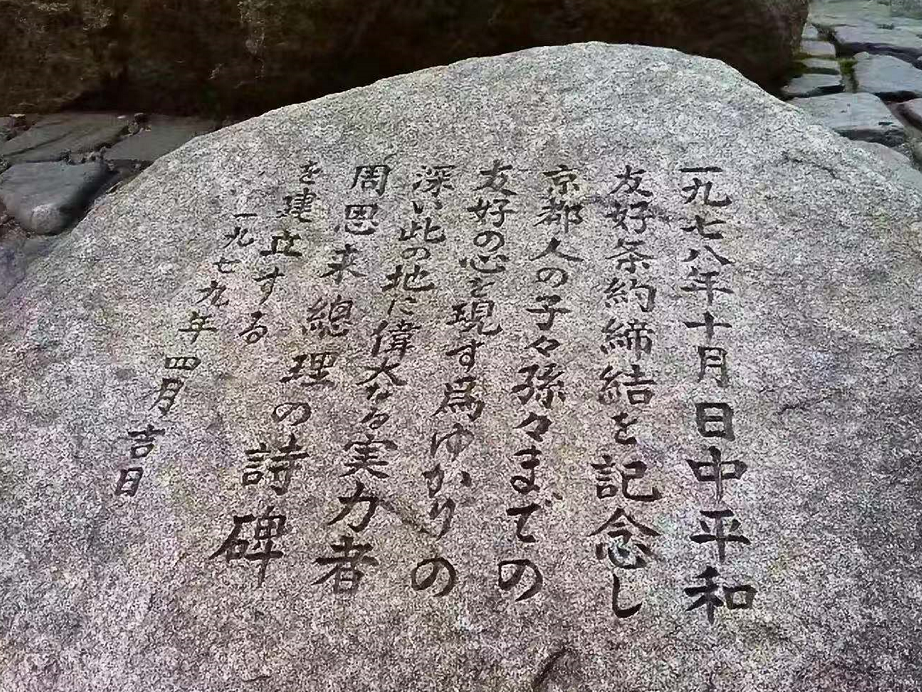 一九七八年十月日中平和
友好条約締結を記念し
京都人の子々孫々までの
友好の心を現す爲ゆかりの
深い此の地に偉大なる実力者
周恩来總理の詩碑
を建立する
一九七九年四月吉日